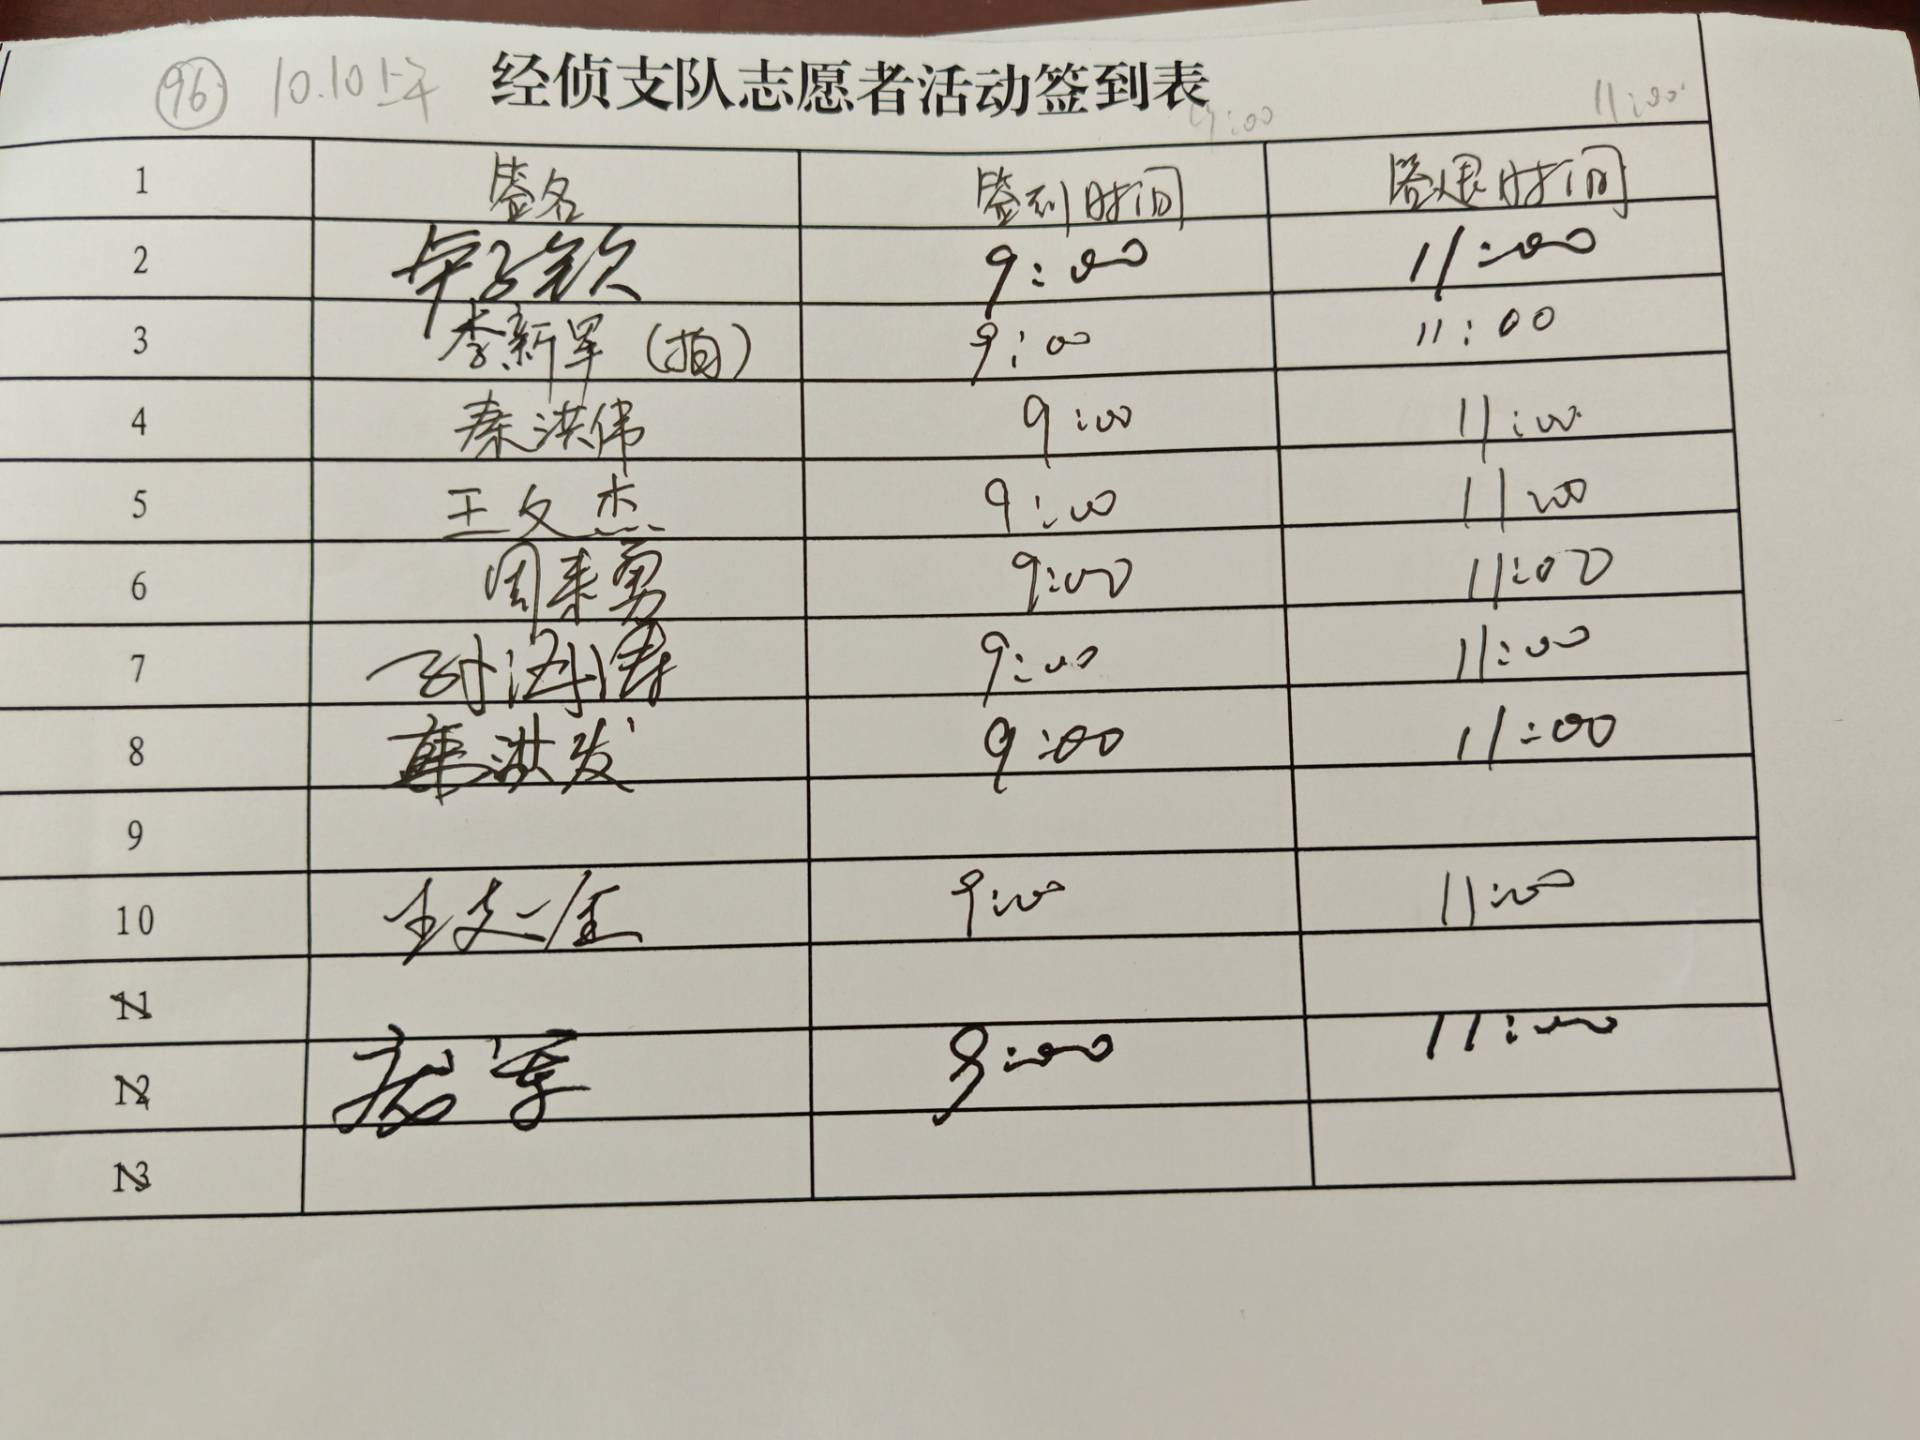 96 10.10上午 经侦支队志愿者活动签到表 9:00 11:00
1 签名 签到时间 签退时间
2 9:00 11:00
3 李新军(拍) 9:00 11:00
4 秦洪伟 9:00 11:00
5 王文杰 9:00 11:00
6 周来勇 9:00 11:00
7 孙海涛 9:00 11:00
8 韩洪发 9:00 11:00
9
10 9:00 11:00
11
12 9:00 11:00
13